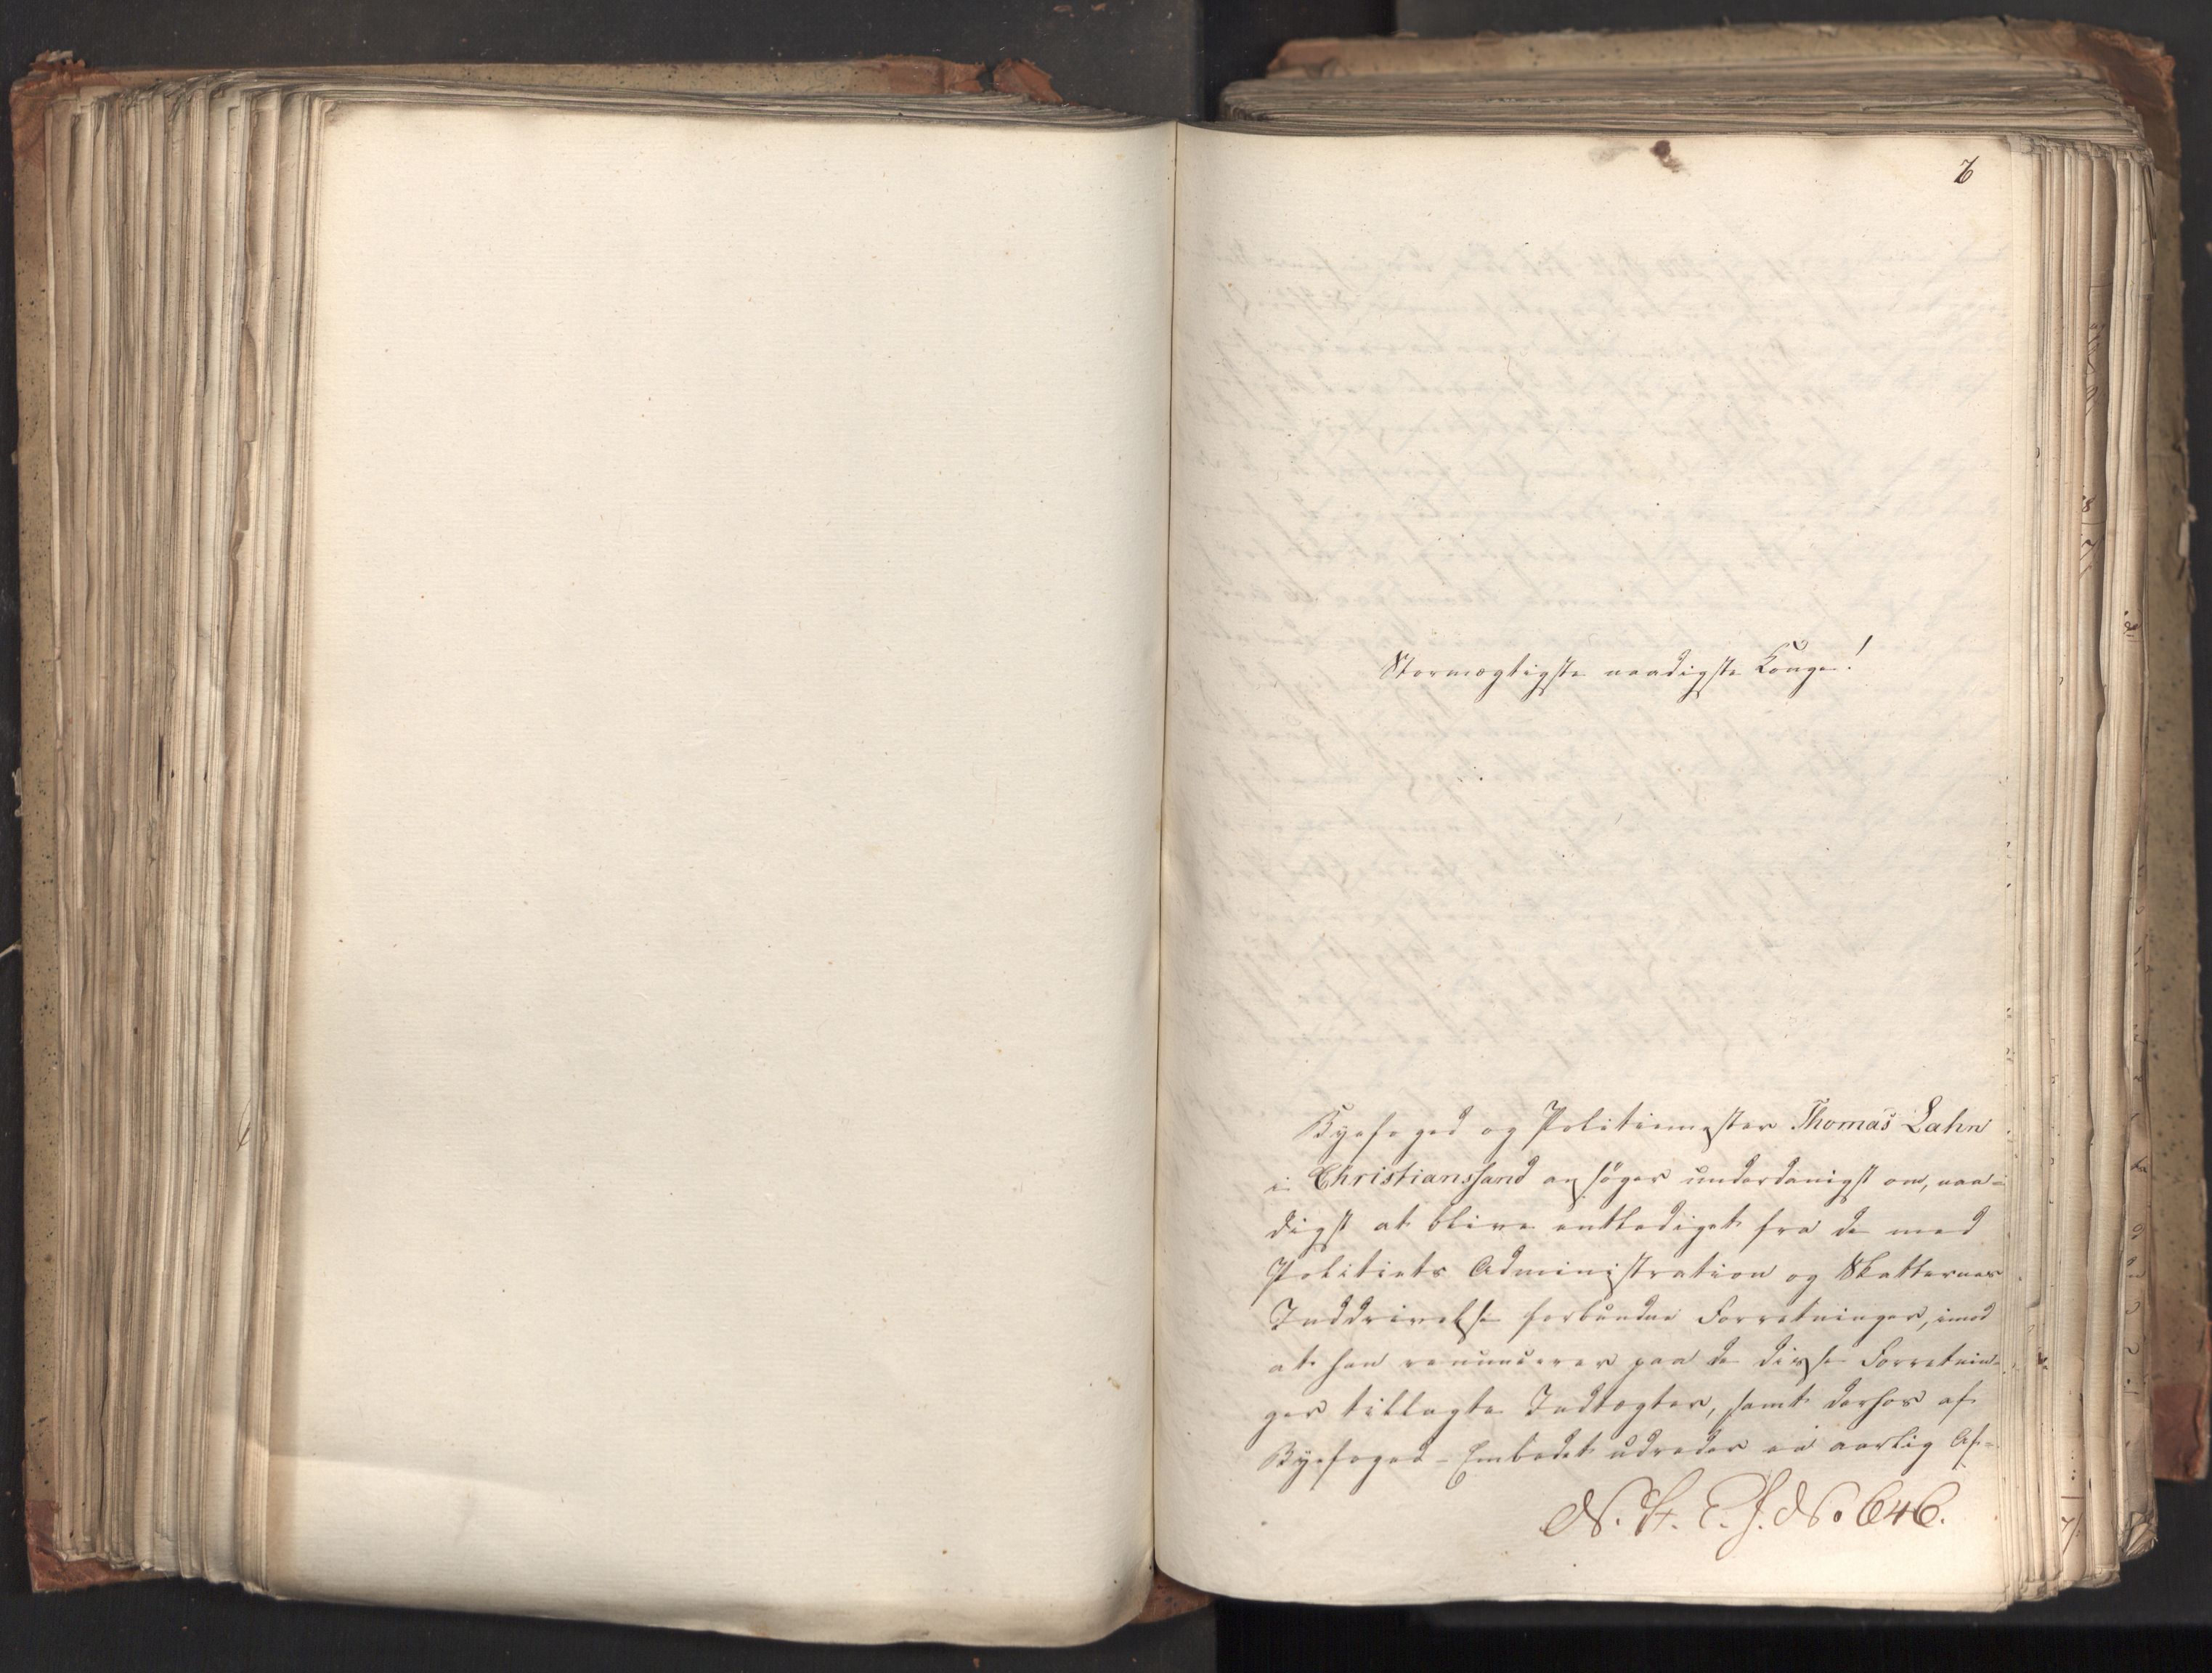 Stormægtigste naadigste Konge!
Byefoged og Politiemester Thomas Lahn
i Christianssand ansøger underdanigst om, naa-
digst at blive entlediget fra de med
Politiets Administration og Skatternes
Inddrivelse forbundne Forretninger, imod
at han renuncerer paa de disse Forretnin-
ger tillagte Indtægter, samt derhos af
Byefoged-Embedet udreder en aarlig Af-
No. 646.